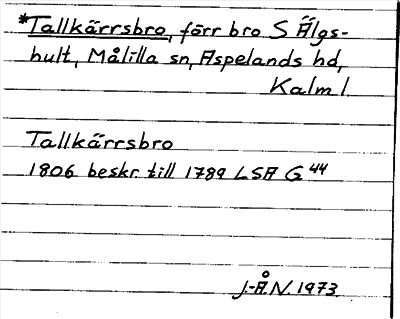 *Tallkärrsbro, förr bro S Älgs-
hult, Målilla sn, Aspelands hd,
Kalm l
Tallkärrsbro
1806 beskr. till 1789 LSA G44
J.-Å.N. 1973.